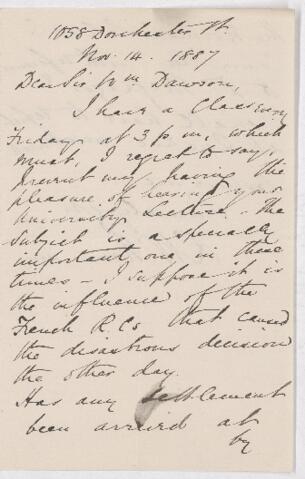 1058 Dorchester St.
Nov. 14. 1887
Dear Sir Wm Dawson,
I have a Class every
Friday at 3 p m, which
must, I regret to say,
prevent my having the
pleasure of hearing your
University Lecture. The
subject is a specially
important one in these
times - I suppose it is
the influence of the
French R.Cs that caused
the disastrous decision
the other day.
Has any settlement
been arrived at
by